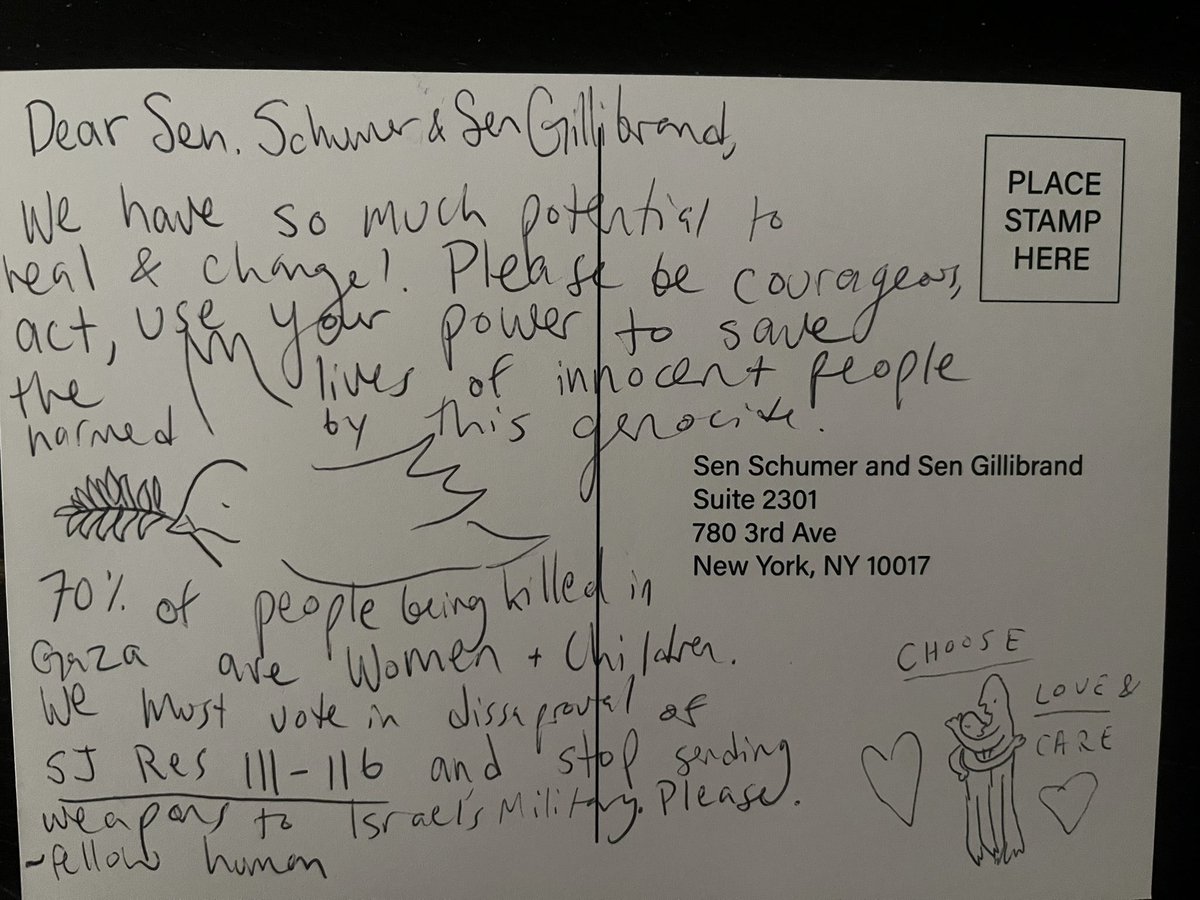 Dear Sen. Schumer & Sen Gillibrand,
We have so much potential to
heal & change! Please be courageous,
act, use your power to save
the lives of innocent people
harmed by this genocide.
PLACE
STAMP
HERE
Sen Schumer and Sen Gillibrand
Suite 2301
780 3rd Ave
New York, NY 10017
70% of people being killed in
Gaza are Women + Children.
We must vote in dissaproval of
SJ Res 111-116 and stop sending
weapons to Israel's Military. Please.
~fellow human
CHOOSE
LOVE &
CARE